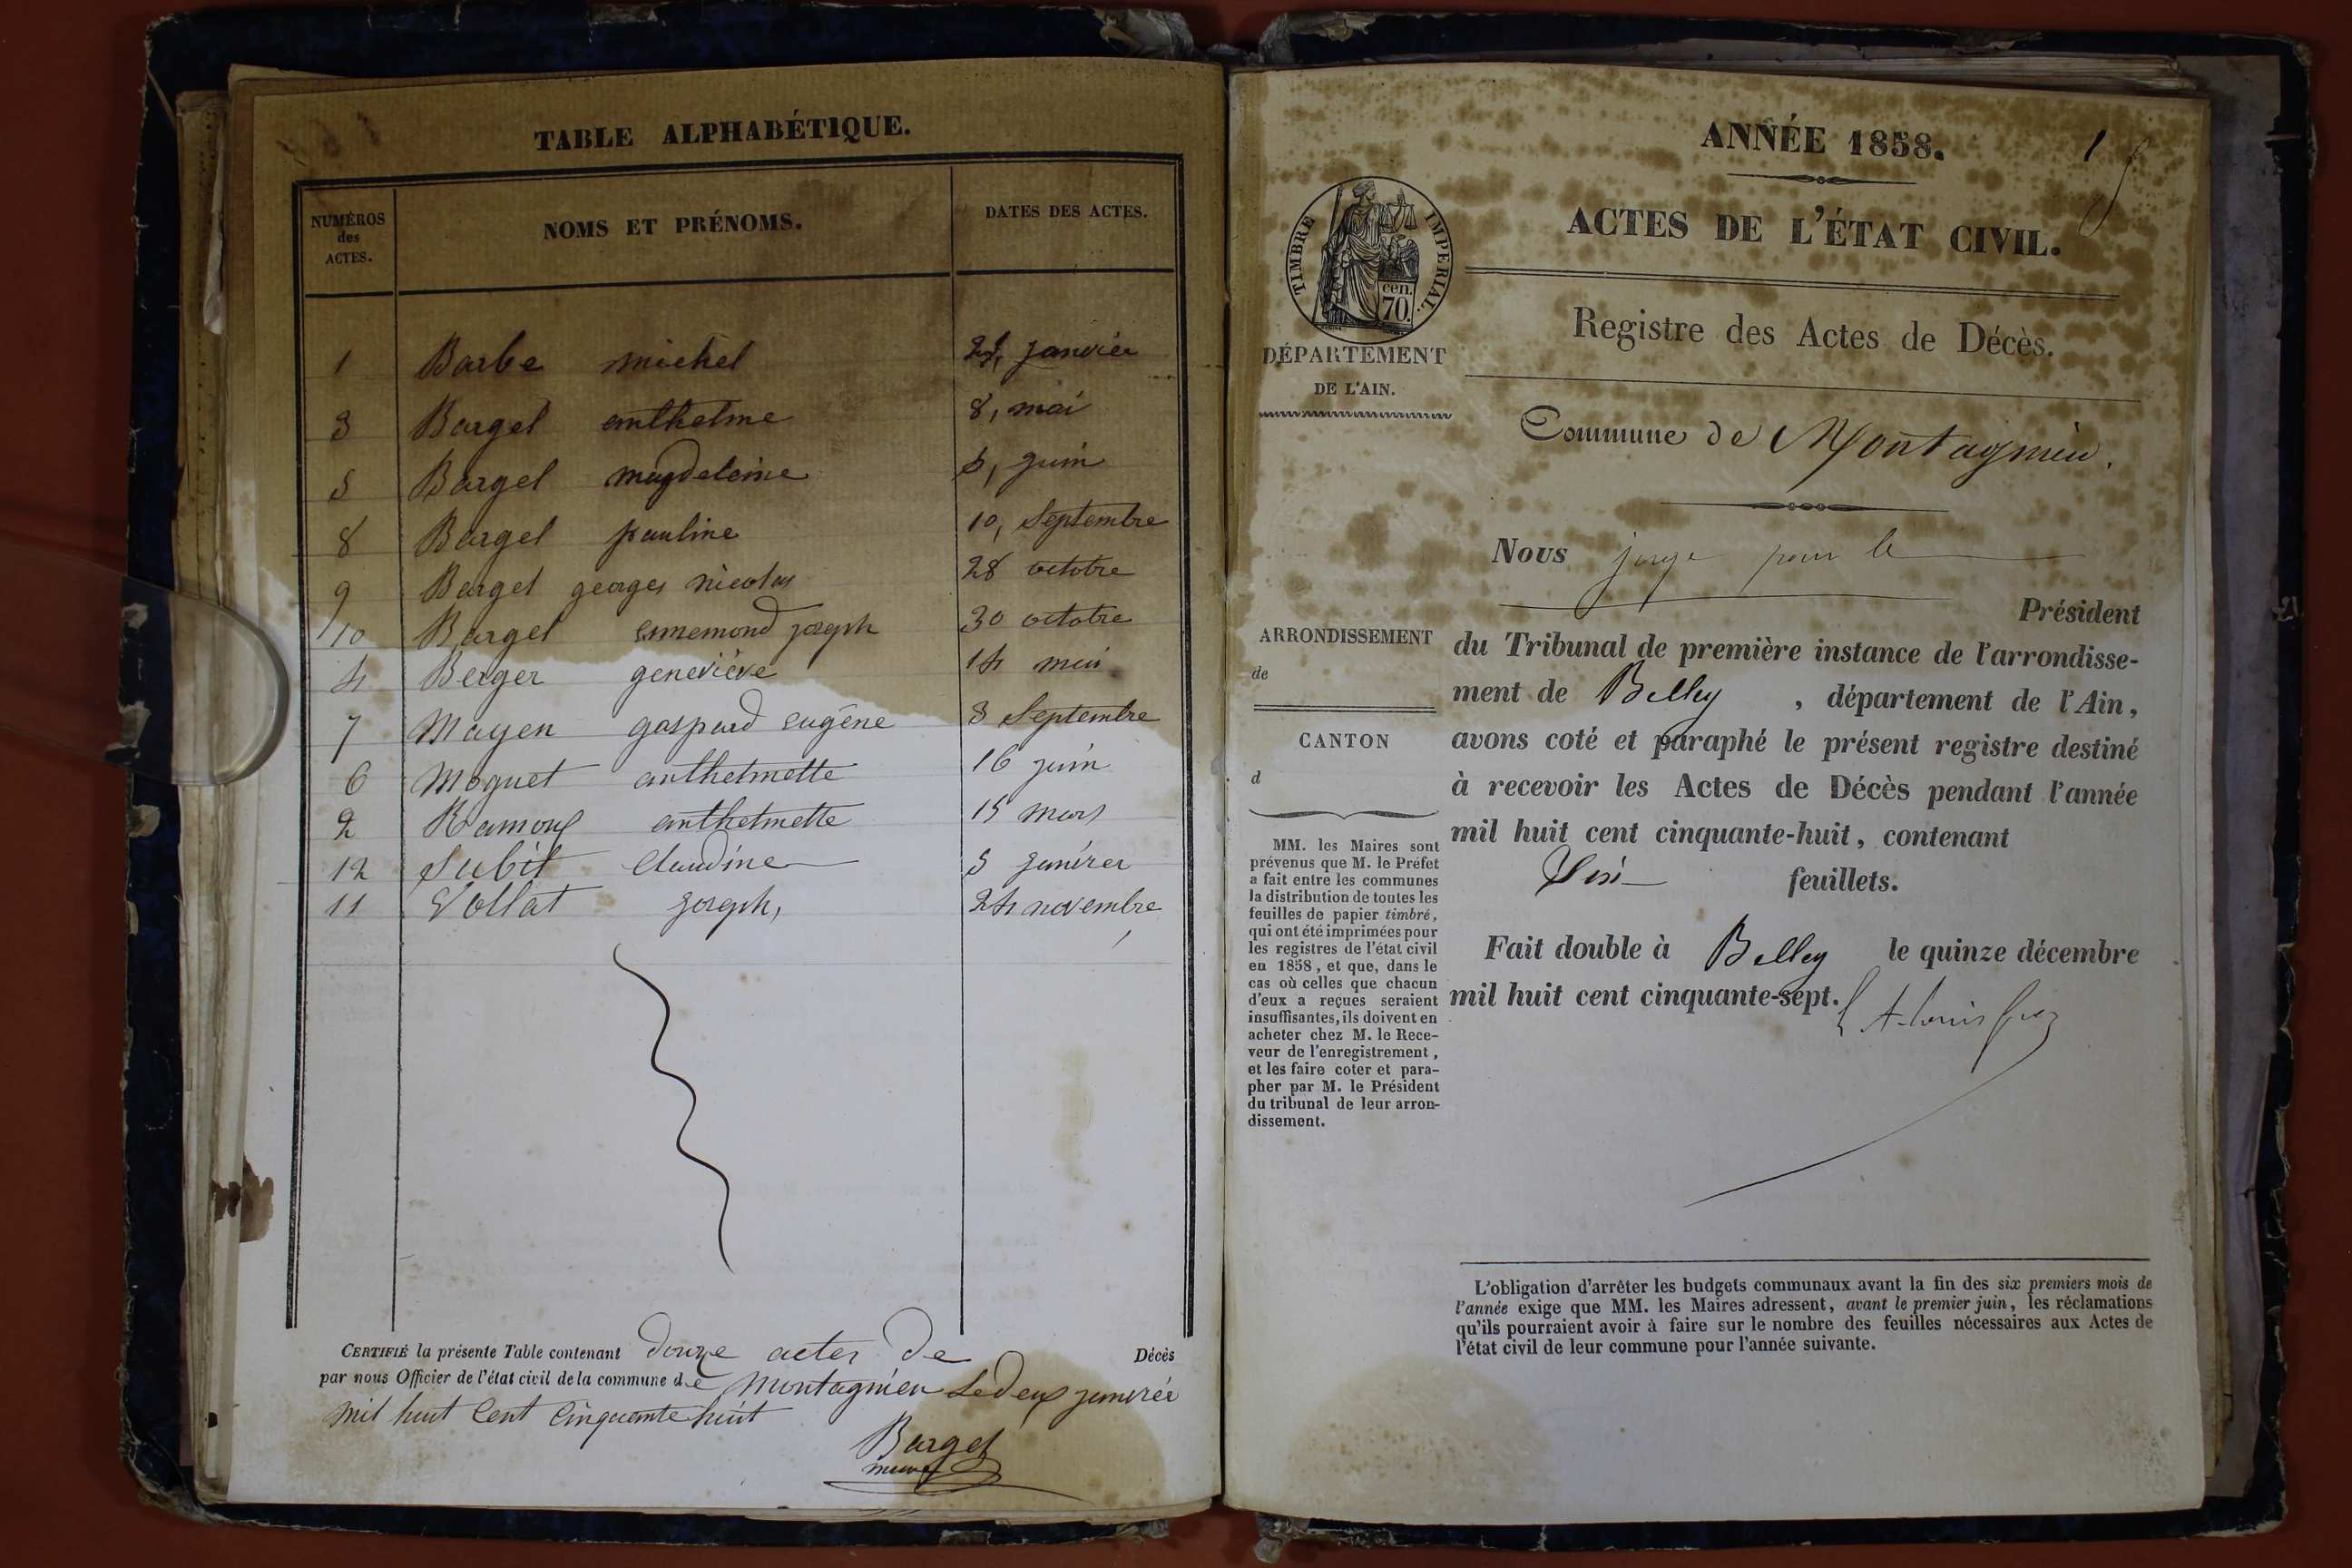 TABLE ALPHABÉTIQUE.
NUMÉROS
des
ACTES.
NOMS ET PRÉNOMS.
DATES DES ACTES.
1 Barbe michel janvier
3 Bargel anthelme 8, mai
5 Bargel magdeleine 5, juin
8 Bargel pauline 10, Septembre
9 Bargel georges nicolas 28 octobre
10 Bargel ennemond joseph 30 octobre
4 Berger geneviève 14 mai
7 Mayen gaspard eugène 3 Septembre
6 Moguet anthelmette 16 juin
2 Ramoux anthelmette 15 mars
12 Subit Claudine 5
11 Vollat joseph, 24 novembre
CERTIFIÉ la présente Table contenant douze actes de Décès
par nous Officier de l'état civil de la commune de Montagnieu Le deux janvier
mil huit Cent Cinquante huit
Bargel
maire
ANNÉE 1858.
1
ACTES DE L'ÉTAT CIVIL.
TIMBRE IMPÉRIAL.
cen.
70.
DÉPARTEMENT
DE L'AIN.
Registre des Actes de Décès.
Commune de Montagnieu.
Nous juge pour le
Président
du Tribunal de première instance de l'arrondisse-
ment de Belley, département de l'Ain,
avons coté et paraphé le présent registre destiné
à recevoir les Actes de Décès pendant l'année
mil huit cent cinquante-huit, contenant
feuillets.
Fait double à Belley le quinze décembre
mil huit cent cinquante-sept.
ARRONDISSEMENT
de
CANTON
d
MM. les Maires sont
prévenus que M. le Préfet
a fait entre les communes
la distribution de toutes les
feuilles de papier timbré,
qui ont été imprimées pour
les registres de l'état civil
en 1858, et que, dans le
cas où celles que chacun
d'eux a reçues seraient
insuffisantes, ils doivent en
acheter chez M. le Rece-
veur de l'enregistrement,
et les faire coter et para-
pher par M. le Président
du tribunal de leur arron-
dissement.
L'obligation d'arrêter les budgets communaux avant la fin des six premiers mois de
l'année exige que MM. les Maires adressent, avant le premier juin, les réclamations
qu'ils pourraient avoir à faire sur le nombre des feuilles nécessaires aux Actes de
l'état civil de leur commune pour l'année suivante.